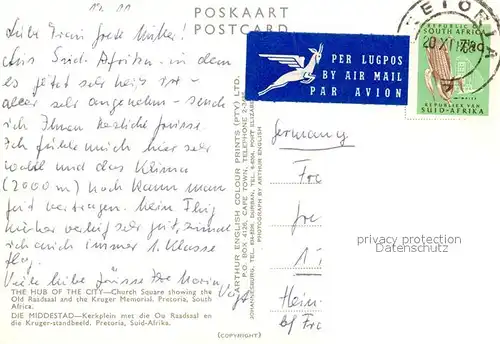 12. 11
POSKAART
POSTCARD
Liebe Frau
Aus Süd-Afrika - in dem
es jetzt sehr heiß ist
aber sehr angenehm - sende
ich Ihnen herzliche Grüsse.
Ich fühle mich hier sehr
wohl und das Klima
(2000 m) noch kann man
gut vertragen. Mein Flug
hierher verlief sehr gut, zumal
ich auch immer 1. Klasse
flog.
Viele liebe Grüsse Ihr
Voigt
THE HUB OF THE CITY—Church Square showing the
Old Raadsaal and the Kruger Memorial, Pretoria, South
Africa.
DIE MIDDESTAD—Kerkplein met die Ou Raadsaal en
die Kruger-standbeeld, Pretoria, Suid-Afrika.
ARTHUR ENGLISH COLOUR PRINTS (PTY) LTD.
P.O. BOX 4126, CAPE TOWN, TELEPHONE
PHOTOGRAPH BY ARTHUR ENGLISH
(COPYRIGHT)
PER LUGPOS
BY AIR MAIL
PAR AVION
PRETORIA
20 XI
REPUBLIC OF
SOUTH AFRICA
REPUBLIEK VAN
SUID-AFRIKA
Germany
Fre
fre
Heim
bf Fre
privacy protection
Datenschutz